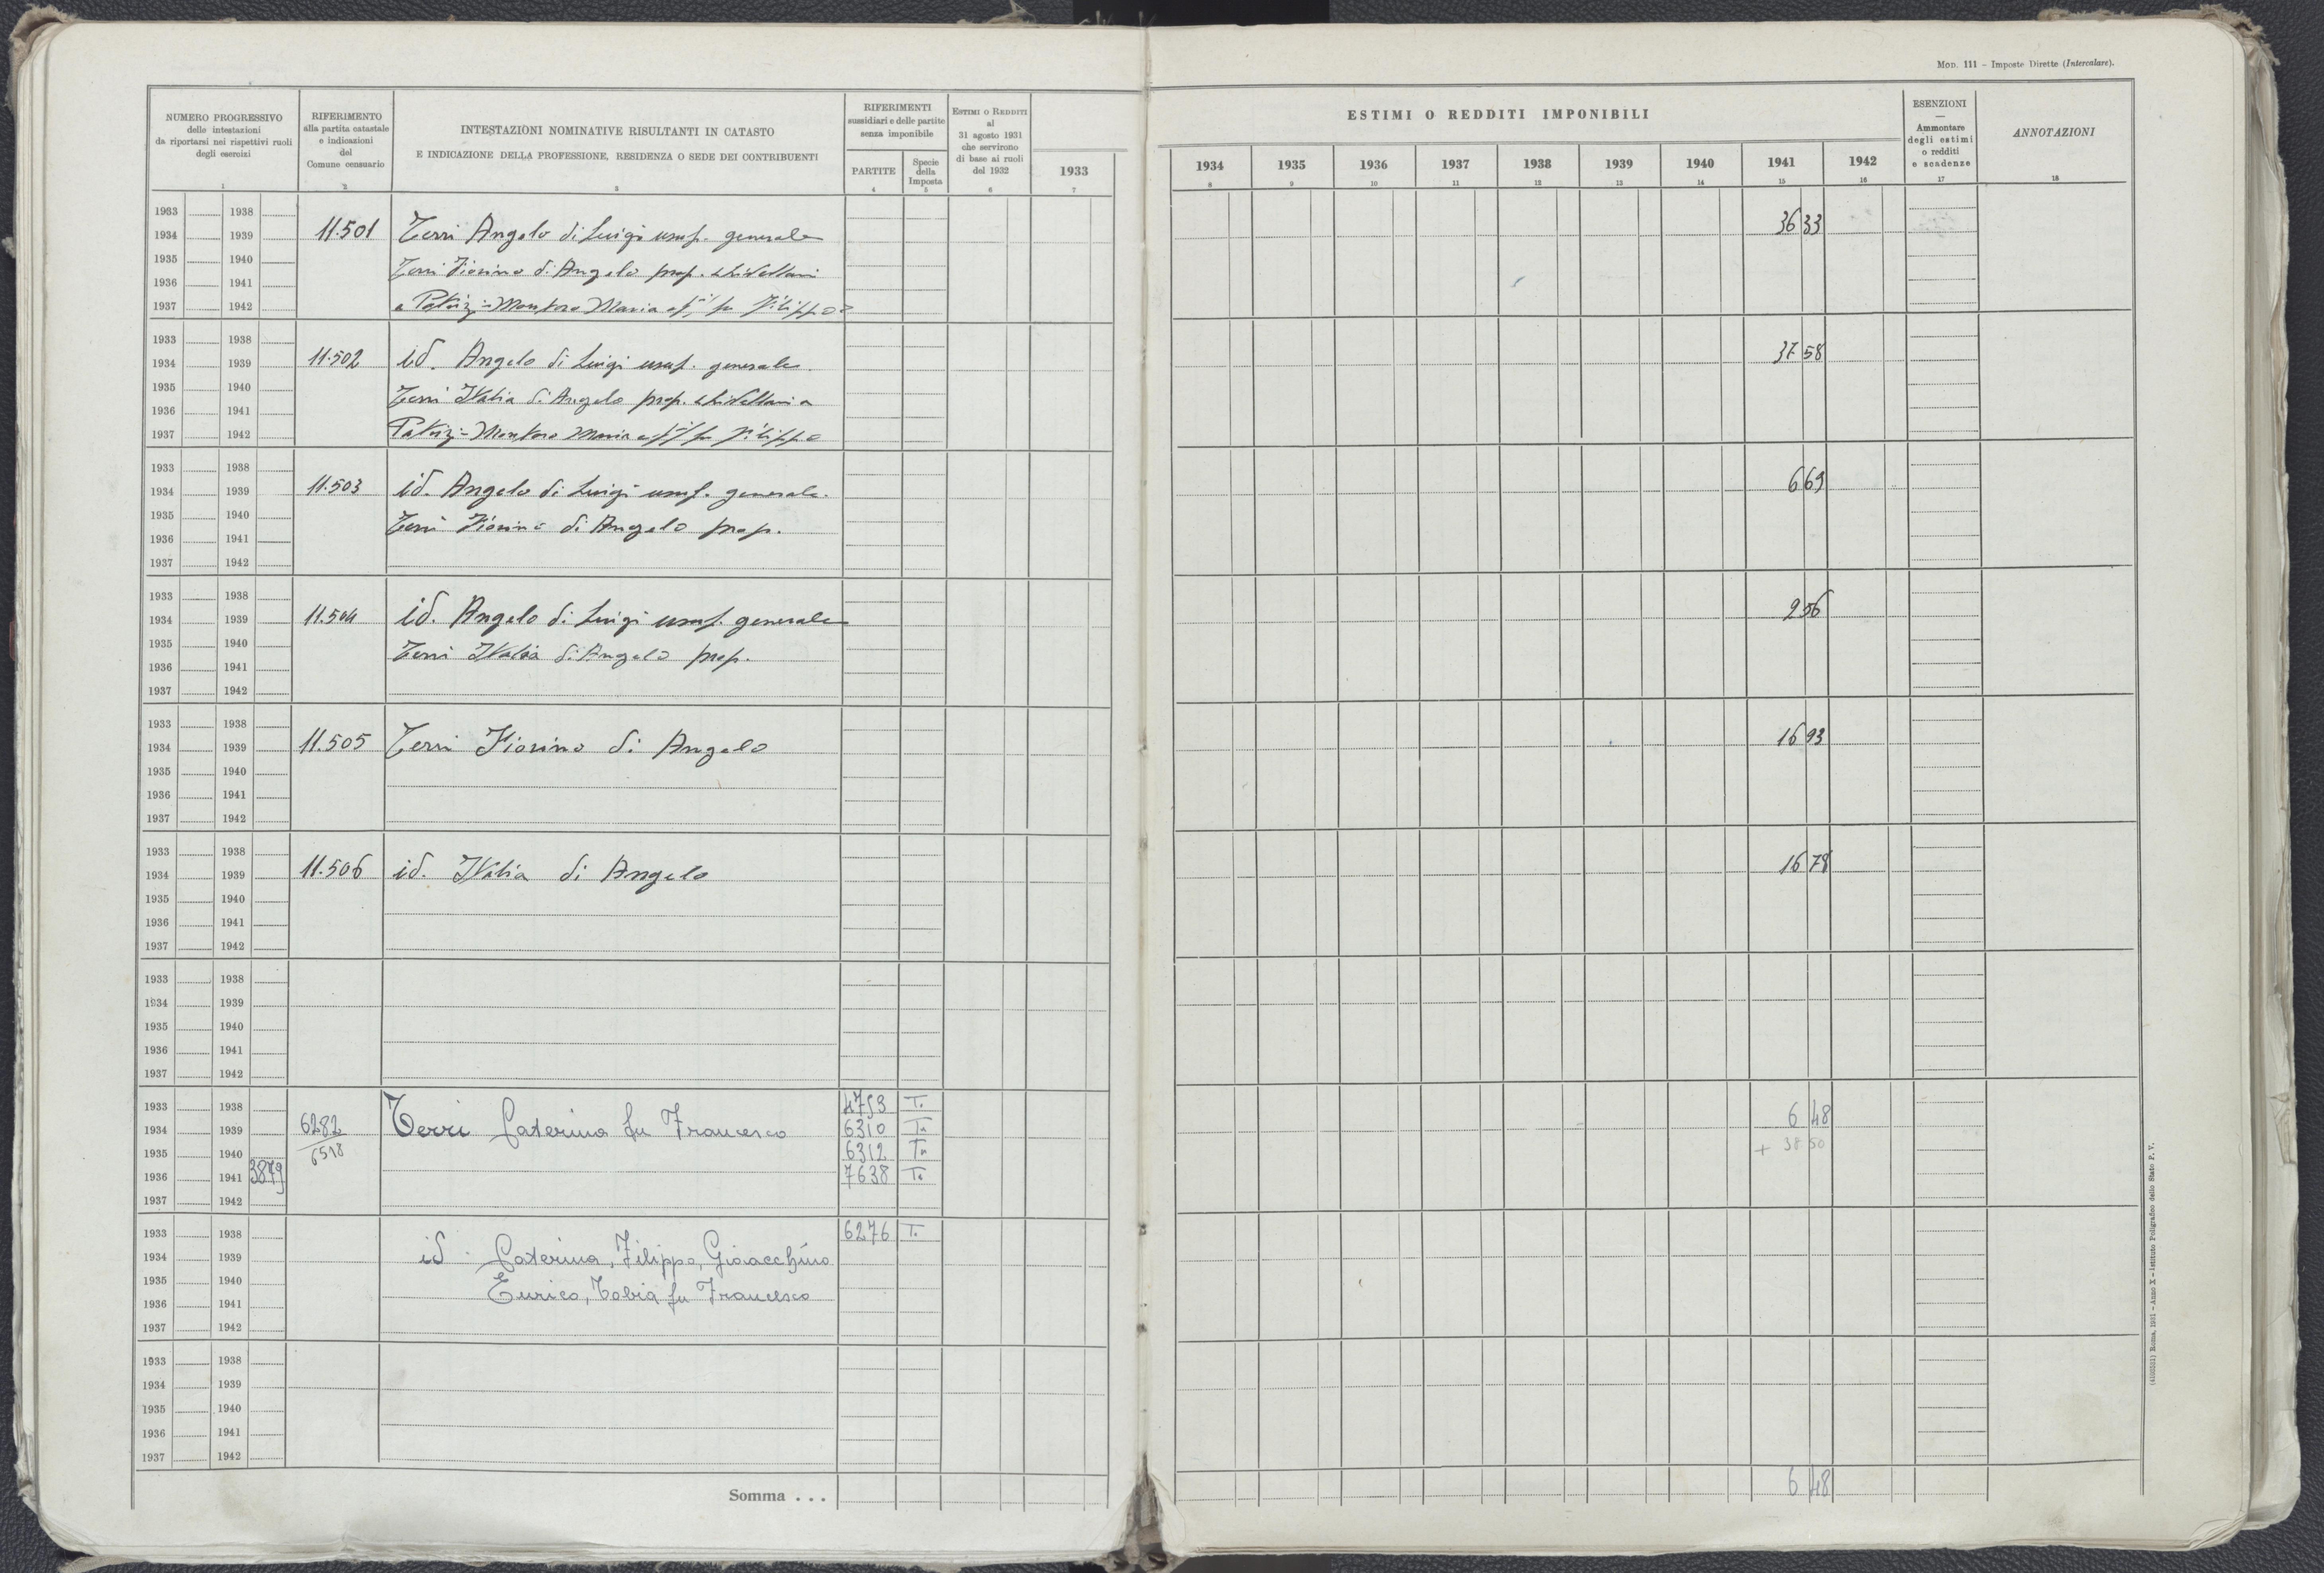 Mod. 111 – Imposte Dirette (Intercalare).
NUMERO PROGRESSIVO
delle intestazioni
da riportarsi nei rispettivi ruoli
degli esercizi
1
RIFERIMENTO
alla partita catastale
e indicazioni
del
Comune censuario
2
INTESTAZIONI NOMINATIVE RISULTANTI IN CATASTO
E INDICAZIONE DELLA PROFESSIONE, RESIDENZA O SEDE DEI CONTRIBUENTI
3
RIFERIMENTI
sussidiari e delle partite
senza imponibile
PARTITE
4
Specie
della
Imposta
5
Estimi o Redditi
al
31 agosto 1931
che servirono
di base ai ruoli
del 1932
6
1933
7
ESTIMI O REDDITI IMPONIBILI
1934 1935 1936 1937 1938 1939 1940 1941 1942
8 9 10 11 12 13 14 15 16
ESENZIONI
—
Ammontare
degli estimi
o redditi
e scadenze
17
ANNOTAZIONI
18
1933 1938
1934 1939 11.501 Terri Angelo di Luigi usuf. generale 36 33
1935 1940 Terri Fiorino di Angelo prop.
1936 1941
1937 1942 e Patrizi-Montoro Maria fu Filippo
1933 1938
1934 1939 11.502 id. Angelo di Luigi usuf. generale. 37 58
1935 1940
1936 1941 Terri Italia di Angelo prop.
1937 1942 Patrizi-Montoro Maria fu Filippo
1933 1938
1934 1939 11.503 id. Angelo di Luigi usuf. generale. 6 69
1935 1940 Terri Fiorino di Angelo prop.
1936 1941
1937 1942
1933 1938
1934 1939 11.504 id. Angelo di Luigi usuf. generale 2 56
1935 1940 Terri Italia di Angelo prop.
1936 1941
1937 1942
1933 1938
1934 1939 11.505 Terri Fiorino di Angelo 16 93
1935 1940
1936 1941
1937 1942
1933 1938
1934 1939 11.506 id. Italia di Angelo 16 78
1935 1940
1936 1941
1937 1942
1933 1938
1934 1939
1935 1940
1936 1941
1937 1942
1933 1938 4753 T. 6 48
1934 1939 6282 Terri Caterina fu Francesco 6310 Tn
1935 1940 6518 6312 Tn + 38 50
1936 1941 3879 7638 Tn
1937 1942
1933 1938 6276 T.
1934 1939 id. Caterina, Filippo, Gioacchino
1935 1940 Enrico, Tobia fu Francesco
1936 1941
1937 1942
1933 1938
1934 1939
1935 1940
1936 1941
1937 1942
Somma . . . 6 48
Roma, 1931 – Anno X – Istituto Poligrafico dello Stato P. V.